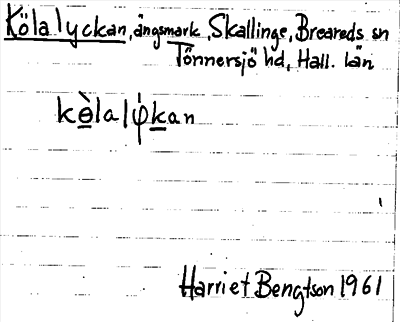 Kölalyckan, ängsmark, Skallinge, Breareds sn
Tönnersjö hd, Hall. län
kèlalφkan
Harriet Bengtson 1961